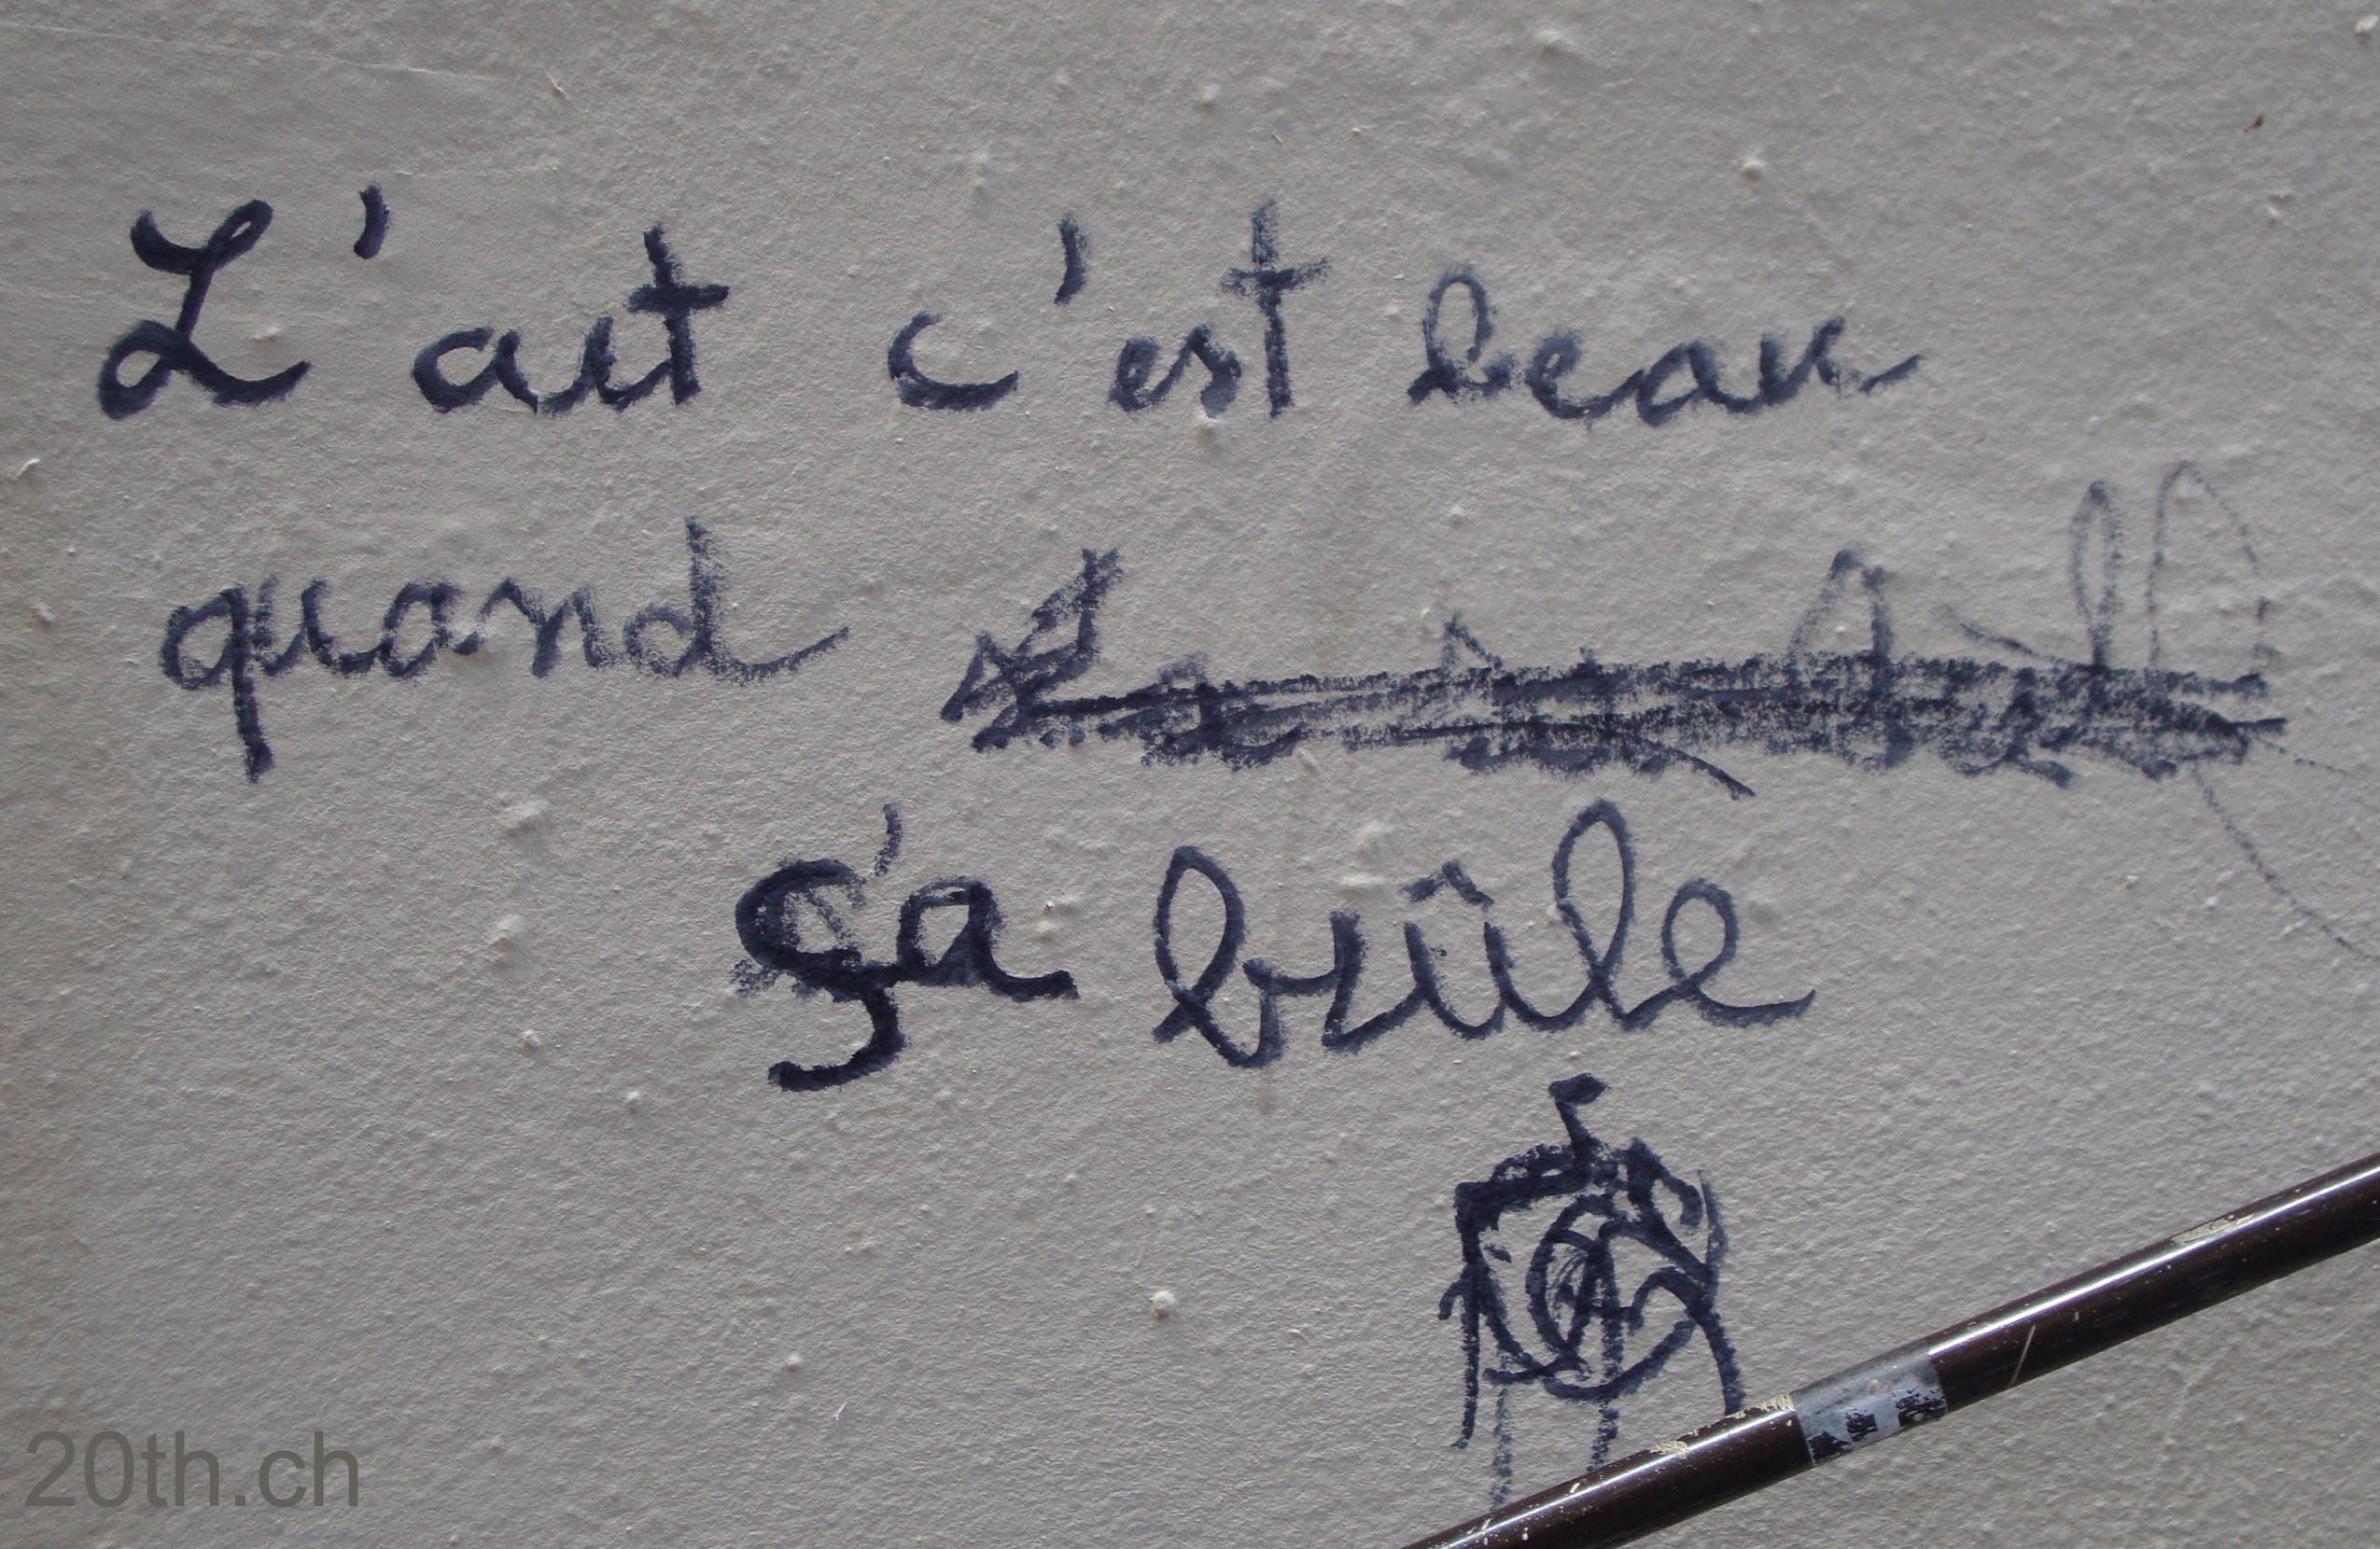 L'art c'est beau
quand
ça brûle
20th.ch